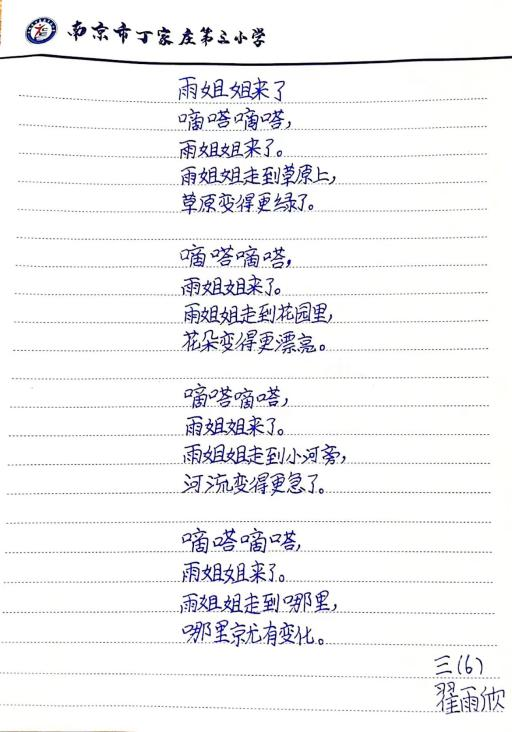 南京市丁家庄第三小学
雨姐姐来了
嘀嗒嘀嗒，
雨姐姐来了。
雨姐姐走到草原上，
草原变得更绿了。
嘀嗒嘀嗒，
雨姐姐来了。
雨姐姐走到花园里，
花朵变得更漂亮。
嘀嗒嘀嗒，
雨姐姐来了。
雨姐姐走到小河旁，
河流变得更急了。
嘀嗒嘀嗒，
雨姐姐来了。
雨姐姐走到哪里，
哪里就有变化。
三（6）
翟雨欣